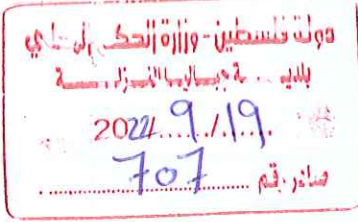 دولة فلسطين - وزارة الحكم المحلي
بلدية جباليا النزلة
2022/9/19
صادر رقم 707